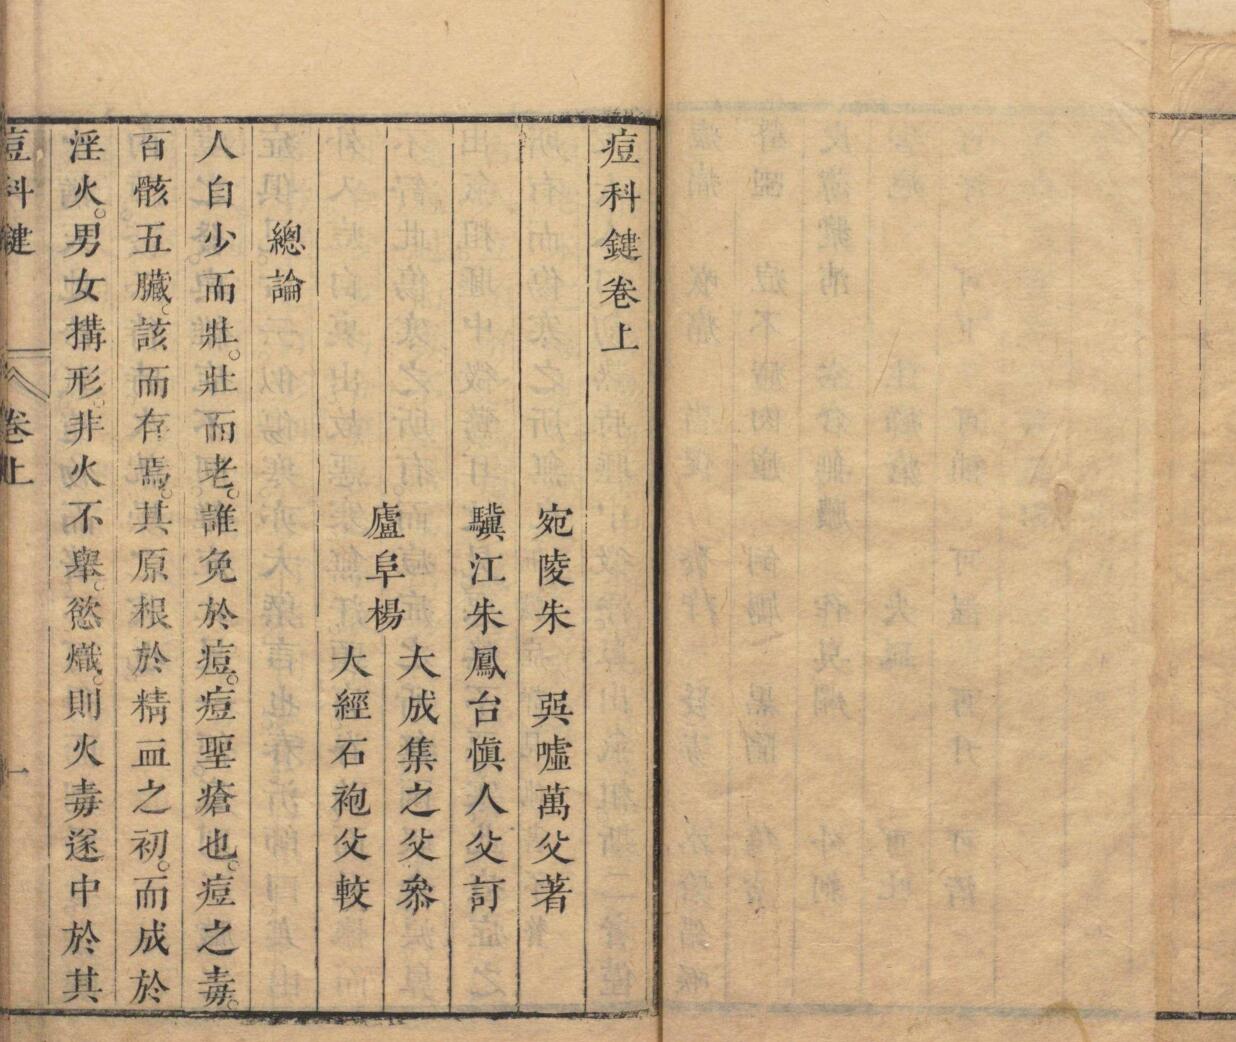 痘科鍵卷上
宛陵朱　巽噓萬父著
驥江朱鳳台慎人父訂
廬阜楊
大成集之父叅
大經石袍父較
總論
人自少而壯。壯而老。誰免於痘。痘聖瘡也。痘之毒。
百骸五臟。該而存焉。其原根於精血之初。而成於
淫火。男女搆形。非火不舉。慾熾。則火毒遂中於其
痘科鍵
卷上
一